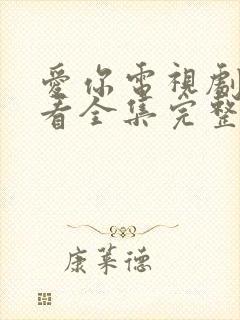 愛你電視劇
看全集完整
康萊德